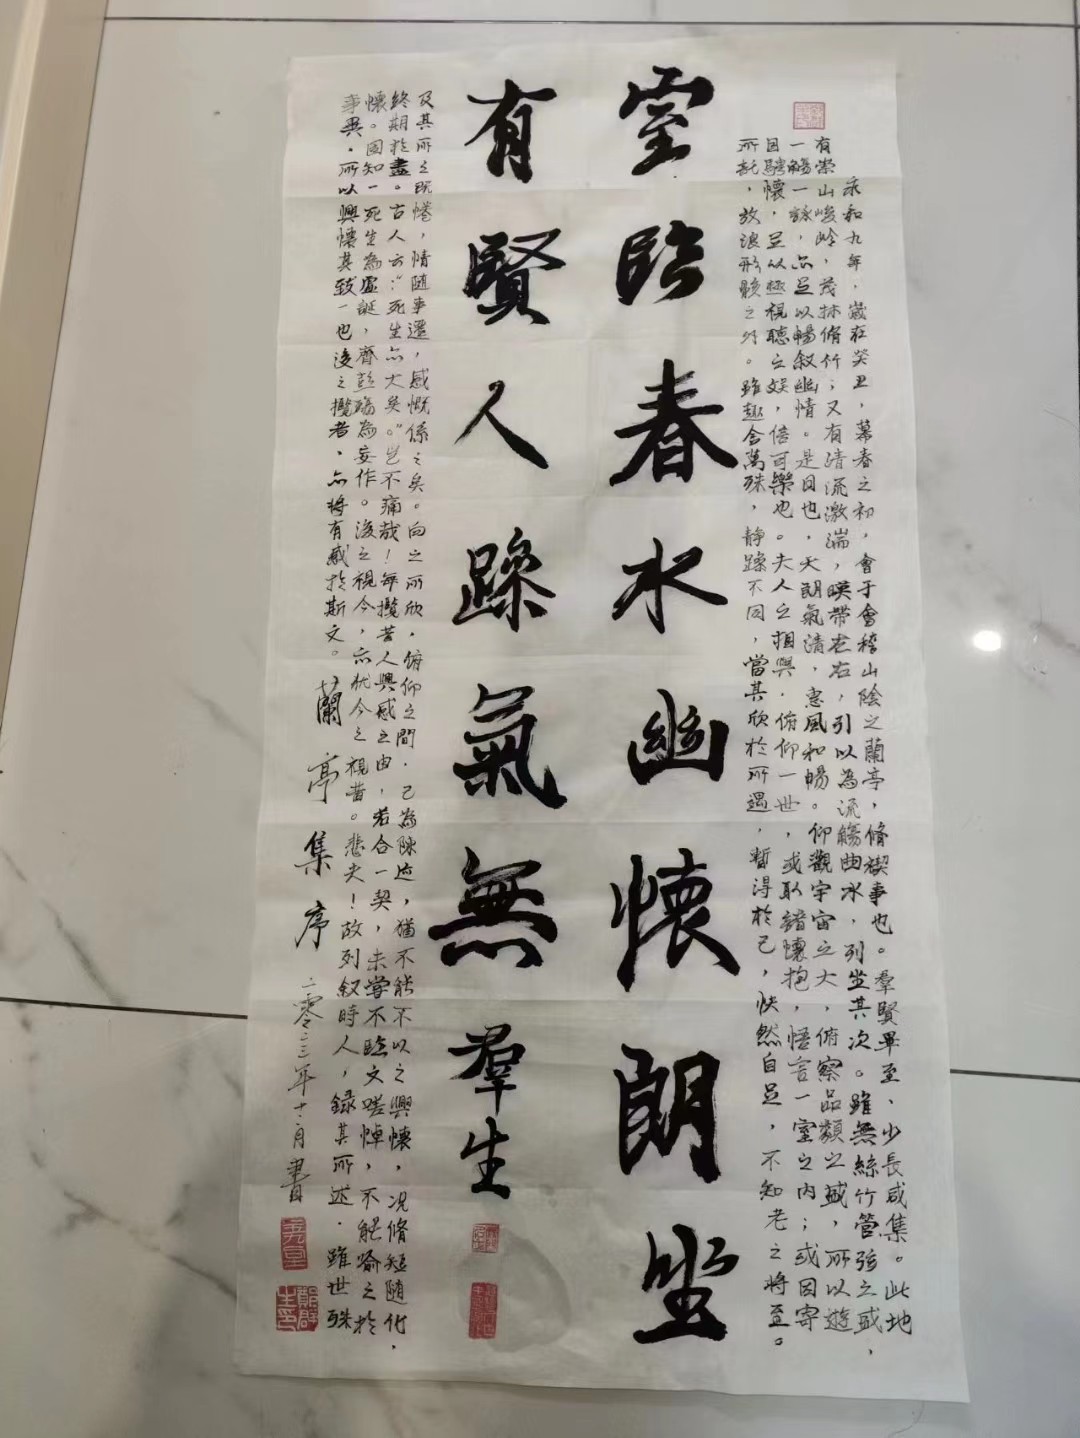 永和九年，歲在癸丑，暮春之初，會于會稽山陰之蘭亭，脩禊事也。羣賢畢至、少長咸集。此地
有崇山峻岭，茂林脩竹；又有清流激湍，暎帶左右，引以為流觴曲水，列坐其次。雖無絲竹管弦之盛，
一觴一詠，亦足以暢叙幽情。是日也，天朗氣清，惠風和暢。仰觀宇宙之大，俯察品類之盛，所以遊
目騁懷，足以極視聽之娱，信可樂也。夫人之相與，俯仰一世，或取諸懷抱，悟言一室之內；或因寄
所託，放浪形骸之外。雖趣舍萬殊，靜躁不同，當其欣於所遇，暫得於己，快然自足，不知老之將至。
室臨春水幽懷朗坐
有賢人躁氣無羣生
及其所之既惓，情随事遷，感慨係之矣。向之所欣，俯仰之間，已為陳迹，猶不能不以之興懷，况脩短随化，
終期於盡。古人云：“死生亦大矣。”豈不痛哉！每攬昔人興感之由，若合一契，未嘗不臨文嗟悼，不能喻之於
懷。固知一死生為虛誕，齊彭殤為妄作。後之視今，亦犹今之視昔。悲夫！故列叙時人，録其所述．雖世殊
事異，所以興懷其致一也後之攬者，亦將有感於斯文。蘭亭集序 二零二三年十一月書
鄭群生印